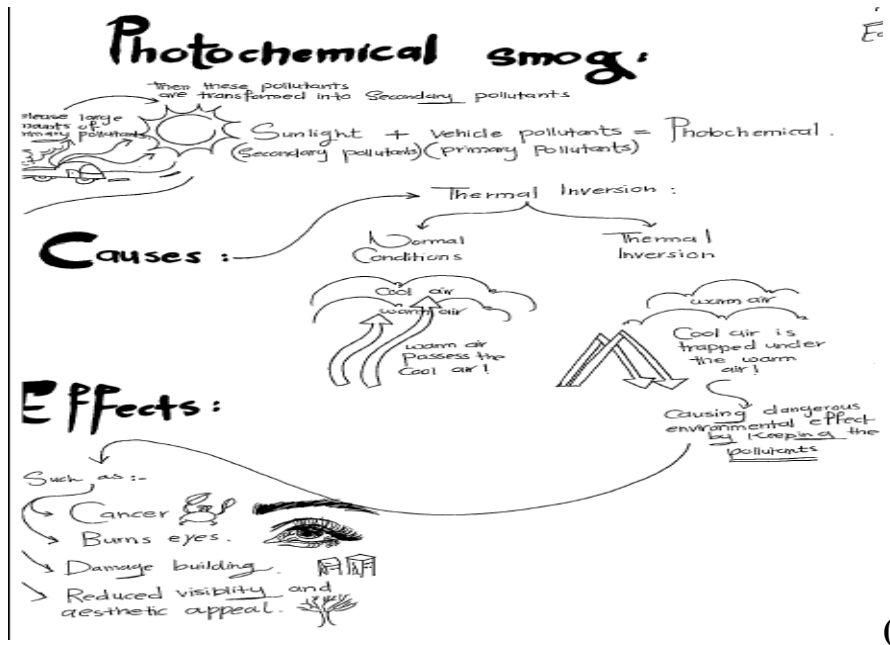 Photochemical smog:
Then these pollutants
are transformed into Secondary pollutants
elease large
mounts of
rimary pollutants
Sunlight + Vehicle pollutants = Photochemical.
(Secondary pollutants) (primary Pollutants)
Thermal Inversion :
Causes :
Normal
Conditions
Thermal
Inversion
Cool air
warm air
warm air
Passess the
Cool air!
warm air
Cool air is
trapped under
the warm
air!
Effects:
Causing dangerous
environmental effect
by Keeping the
pollutants
Such as:-
Cancer
Burns eyes.
Damage building.
Reduced visiblity and
aesthetic appeal.